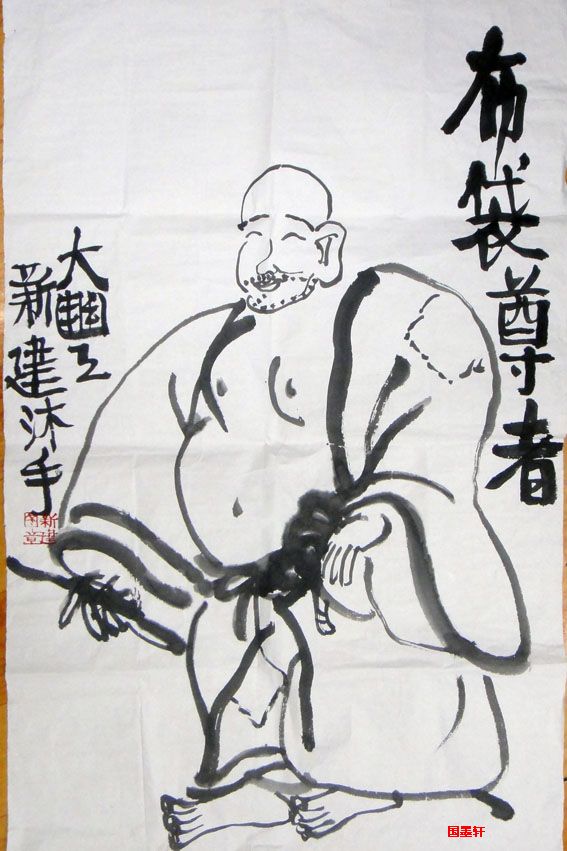 布袋尊者
大
新建沐手
新建
图章
国墨轩